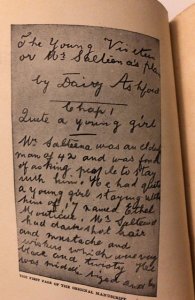 The Young Visiters
or Mr Salteena's plan
by Daisy Ashford
Chap 1
Quite a young girl
Mr Salteena was an elderly
man of 42 and was fond
of asking people to stay
with him. He had quite
a young girl staying with
him of 17 named Ethel
Monticue. Mr Salteena
had dark short hair
and mustache and
wiskers which were very
black and twisty. He
was middle sized and he
THE FIRST PAGE OF THE ORIGINAL MANUSCRIPT